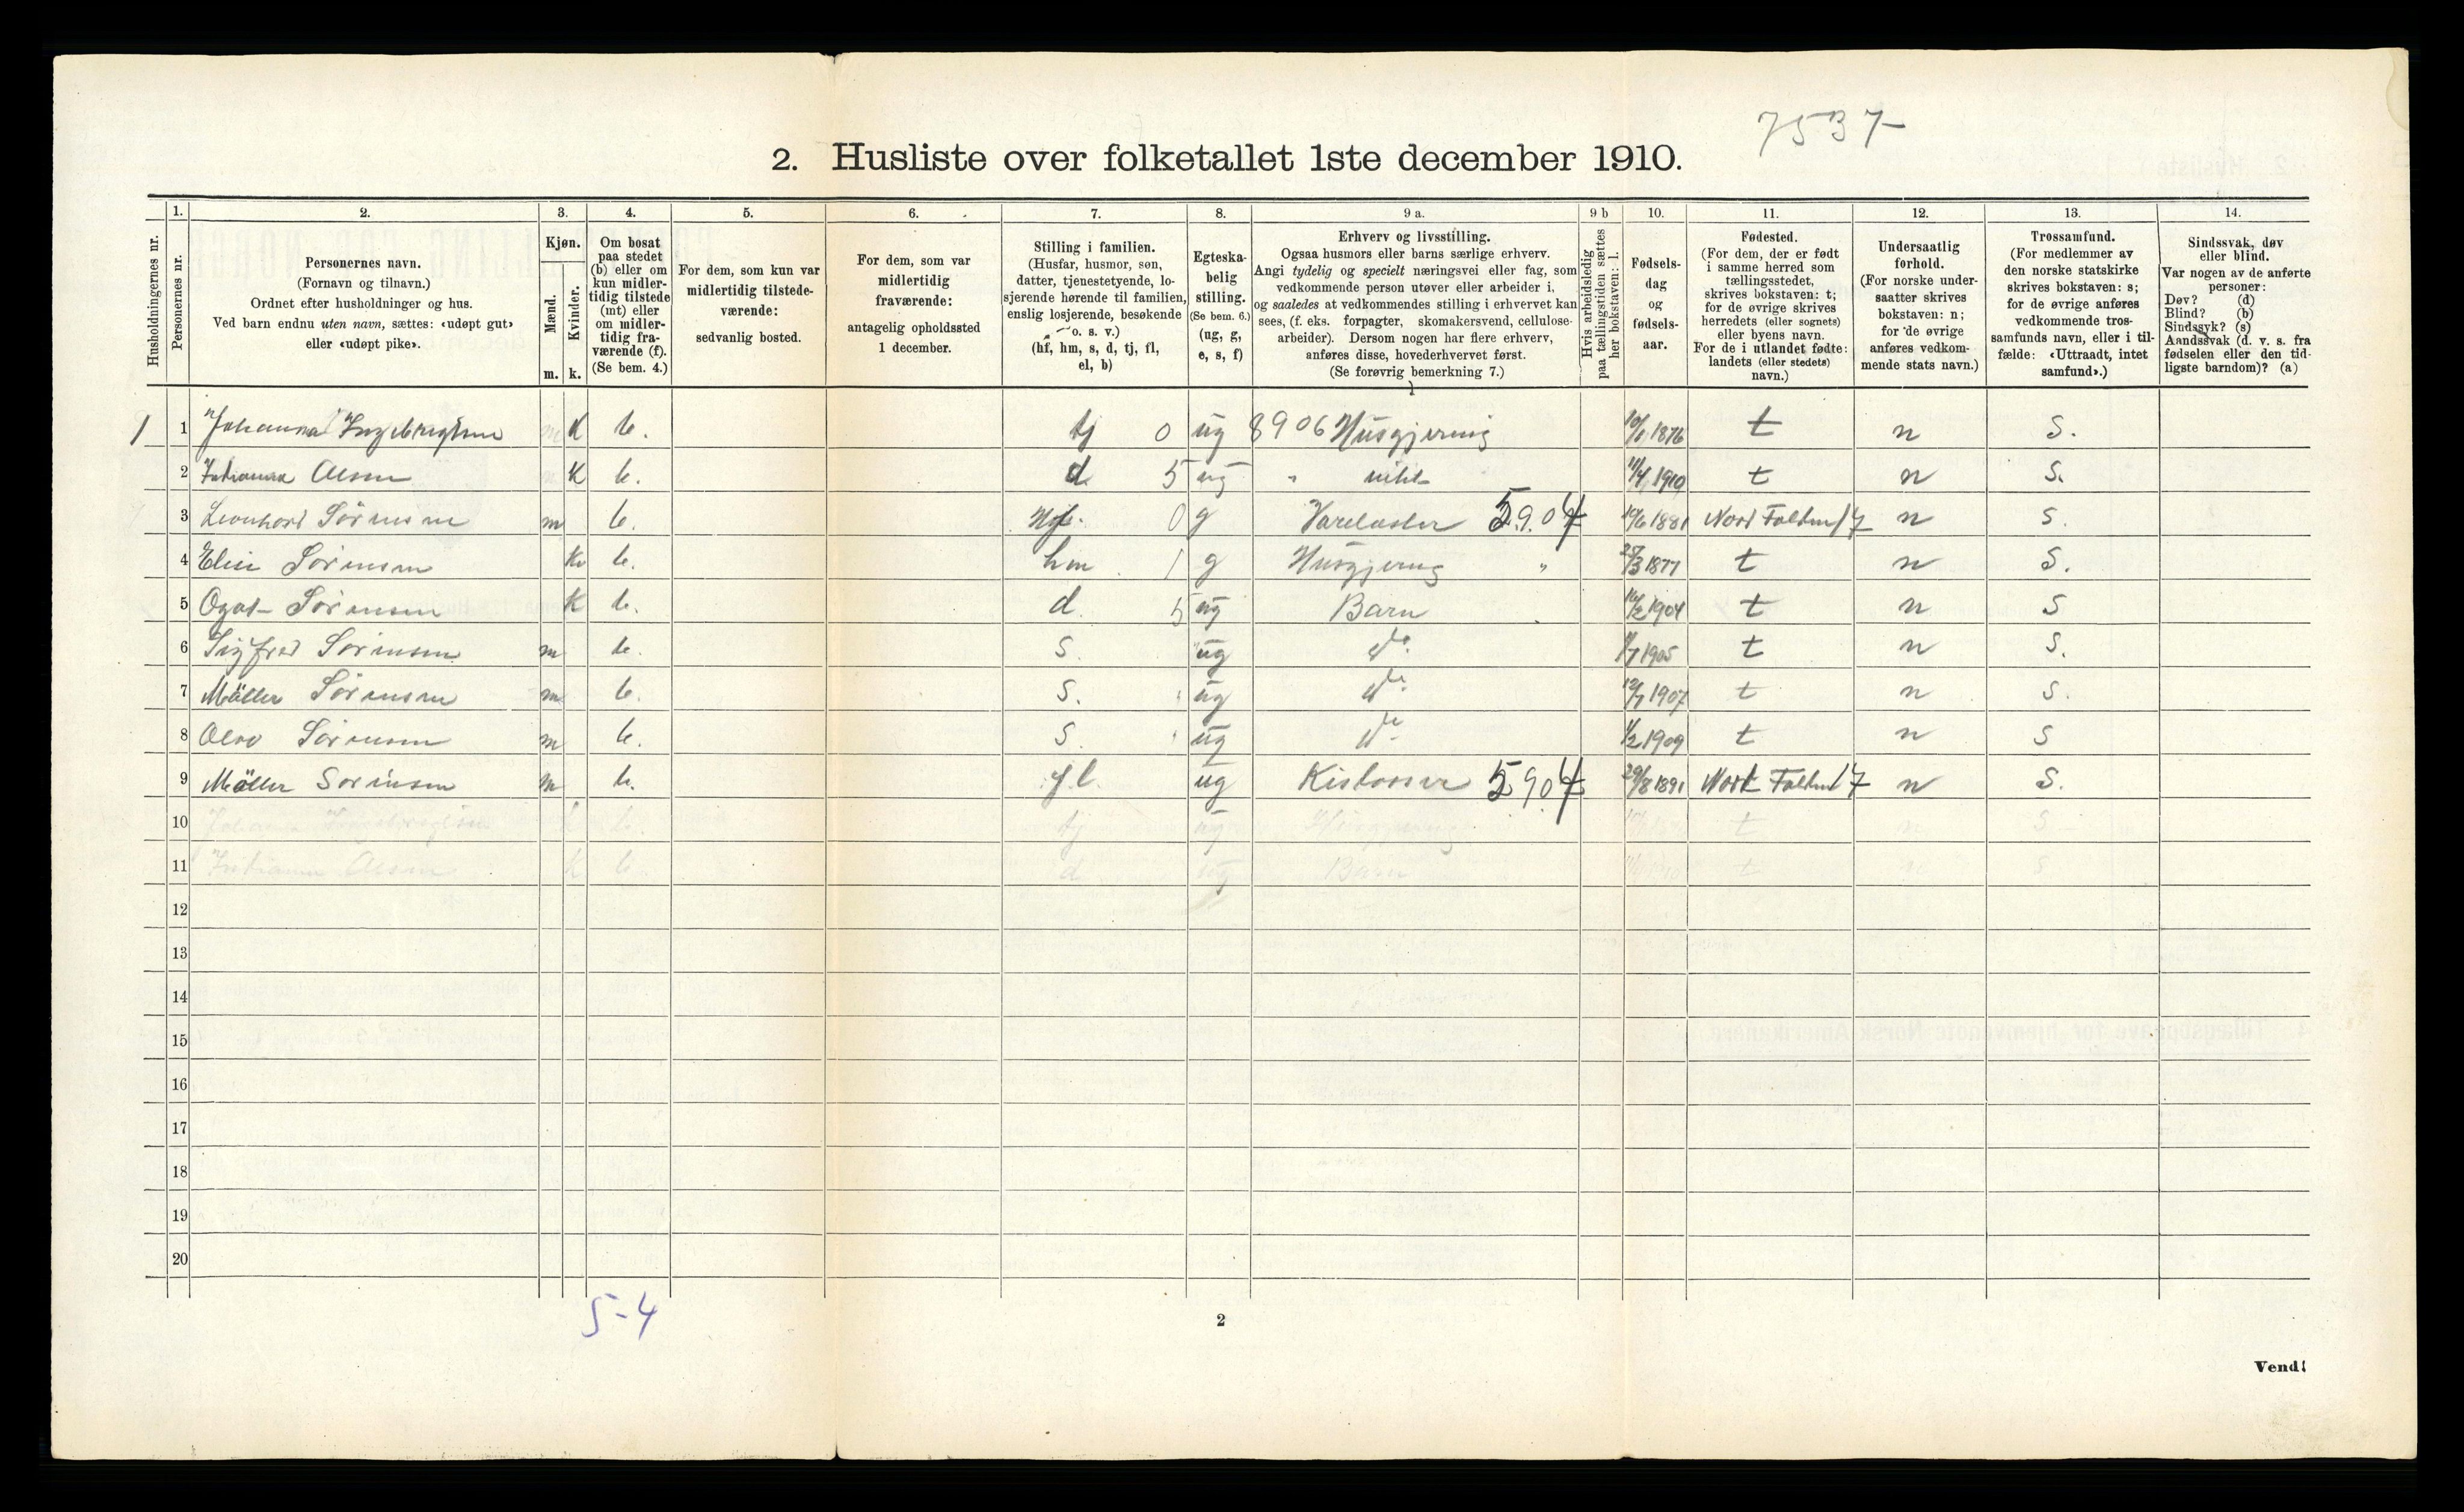 7537-
2. Husliste over folketallet 1ste december 1910.
Husholdningernes nr.
1. Personernes nr.
2. Personernes navn.
(Fornavn og tilnavn.)
Ordnet efter husholdninger og hus.
Ved barn endnu uten navn, sættes: «udøpt gut»
eller «udøpt pike».
3. Kjøn.
Mænd. m.
Kvinder. k.
4. Om bosat
paa stedet
(b) eller om
kun midler-
tidig tilstede
(mt) eller
om midler-
tidig fra-
værende (f).
(Se bem. 4.)
5. For dem, som kun var
midlertidig tilstede-
værende:
sedvanlig bosted.
6. For dem, som var
midlertidig
fraværende:
antagelig opholdssted
1 december.
7. Stilling i familien.
(Husfar, husmor, søn,
datter, tjenestetyende, lo-
sjerende hørende til familien,
enslig losjerende, besøkende
o. s. v.)
(hf, hm, s, d, tj, fl,
el, b)
8. Egteska-
belig
stilling.
(Se bem. 6.)
(ug, g,
e, s, f)
9 a. Erhverv og livsstilling.
Ogsaa husmors eller barns særlige erhverv.
Angi tydelig og specielt næringsvei eller fag, som
vedkommende person utøver eller arbeider i,
og saaledes at vedkommendes stilling i erhvervet kan
sees, (f. eks. forpagter, skomakersvend, cellulose-
arbeider). Dersom nogen har flere erhverv,
anføres disse, hovederhvervet først.
(Se forøvrig bemerkning 7.)
9 b Hvis arbeidsledig
paa tællingstiden sættes
her bokstaven: l.
10. Fødsels-
dag
og
fødsels-
aar.
11. Fødested.
(For dem, der er født
i samme herred som
tællingsstedet,
skrives bokstaven: t;
for de øvrige skrives
herredets (eller sognets)
eller byens navn.
For de i utlandet fødte:
landets (eller stedets)
navn.)
12. Undersaatlig
forhold.
(For norske under-
saatter skrives
bokstaven: n;
for de øvrige
anføres vedkom-
mende stats navn.)
13. Trossamfund.
(For medlemmer av
den norske statskirke
skrives bokstaven: s;
for de øvrige anføres
vedkommende tros-
samfunds navn, eller i til-
fælde: «Uttraadt, intet
samfund».)
14. Sindssvak, døv
eller blind.
Var nogen av de anførte
personer:
Døv? (d)
Blind? (b)
Sindssyk? (s)
Aandssvak (d. v. s. fra
fødselen eller den tid-
ligste barndom)? (a)
1 1 Johanna Ingebrigtsen K b. tj 0 ug 8906 Husgjerning 10/1 1876 t n S.
2 Olsen K b. d 5 ug 11/4 1910 t n S.
3 Leonhard Sörensen m b. Hf. 0 g 5904 19/6 1881 Nord Folden 17 n S.
4 Elise Sörensen K b. hm 1 g Husgjerning " 27/3 1877 t n S.
5 Sörensen K b. d. 5 ug Barn 1904 t n S
6 Sigfred Sörensen m b. S. ug do 1905 t n S.
7 Möller Sörensen m b. S. ug do 1907 t n S.
8 Sörensen m b. S. ug do 1/2 1909 t n S
9 Möller Sörensen m b. fl. ug 5904 29/8 1891 Nord Folden 17 n S.
10 Johanna Ingebrigtsen K b. tj ug Husgjerning t n S
11 Olsen K b. d ug Barn t n S
12
13
14
15
16
17
18
19
20
5-4
2
Vend!